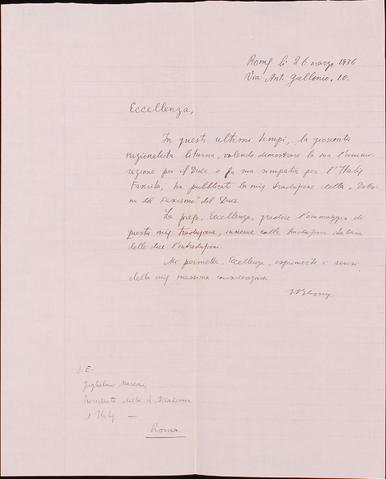 Roma lì 26 marzo 1936
Via Ant. Gallonio, 10.
Eccellenza,
In questi ultimi tempi, la gioventù
nazionalista lituana, volendo dimostrare la sua ammi-
razione per il Duce e la sua simpatia per l'Italia
Fascista, ha pubblicato la mia traduzione della "Dottri-
na del Fascismo" del Duce.
La prego, Eccellenza, gradire l'ommaggio di
questa mia traduzione, insieme colla traduzione italiana
delle due
Mi permetta, Eccellenza, esprimerle i sensi
della mia massima considerazione
S. E.
Guglielmo Marconi
Presidente della R. Accademia
d'Italia —
Roma